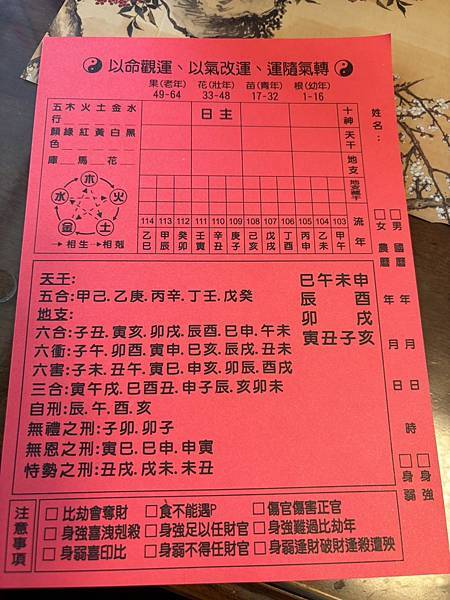 以命觀運、以氣改運、運隨氣轉
果(老年) 花(壯年) 苗(青年) 根(幼年)
49-64 33-48 17-32 1-16
五行 木火土金水
顏色 綠紅黃白黑
庫 馬 花
日主
十神
天干
地支
地支藏干
木
水 火
金 土
→相生→相剋
114 113 112 111 110 109 108 107 106 105 104 103
乙巳 甲辰 癸卯 壬寅 辛丑 庚子 己亥 戊戌 丁酉 丙申 乙未 甲午
流年
姓名：
□女 □男
農曆 國曆
年 年
月 月
日 日
時
□身弱 □身強
天干:
五合:甲己.乙庚.丙辛.丁壬.戊癸
地支:
六合:子丑.寅亥.卯戌.辰酉.巳申.午未
六衝:子午.卯酉.寅申.巳亥.辰戌.丑未
六害:子未.丑午.寅巳.申亥.卯辰.酉戌
三合:寅午戌.巳酉丑.申子辰.亥卯未
自刑:辰.午.酉.亥
無禮之刑:子卯.卯子
無恩之刑:寅巳.巳申.申寅
恃勢之刑:丑戌.戌未.未丑
巳午未申
辰 酉
卯 戌
寅丑子亥
注意事項
□比劫會奪財 □食不能遇P □傷官傷害正官
□身強喜洩剋殺 □身強足以任財官 □身強難過比劫年
□身弱喜印比 □身弱不得任財官 □身弱逢財破財逢殺遭殃